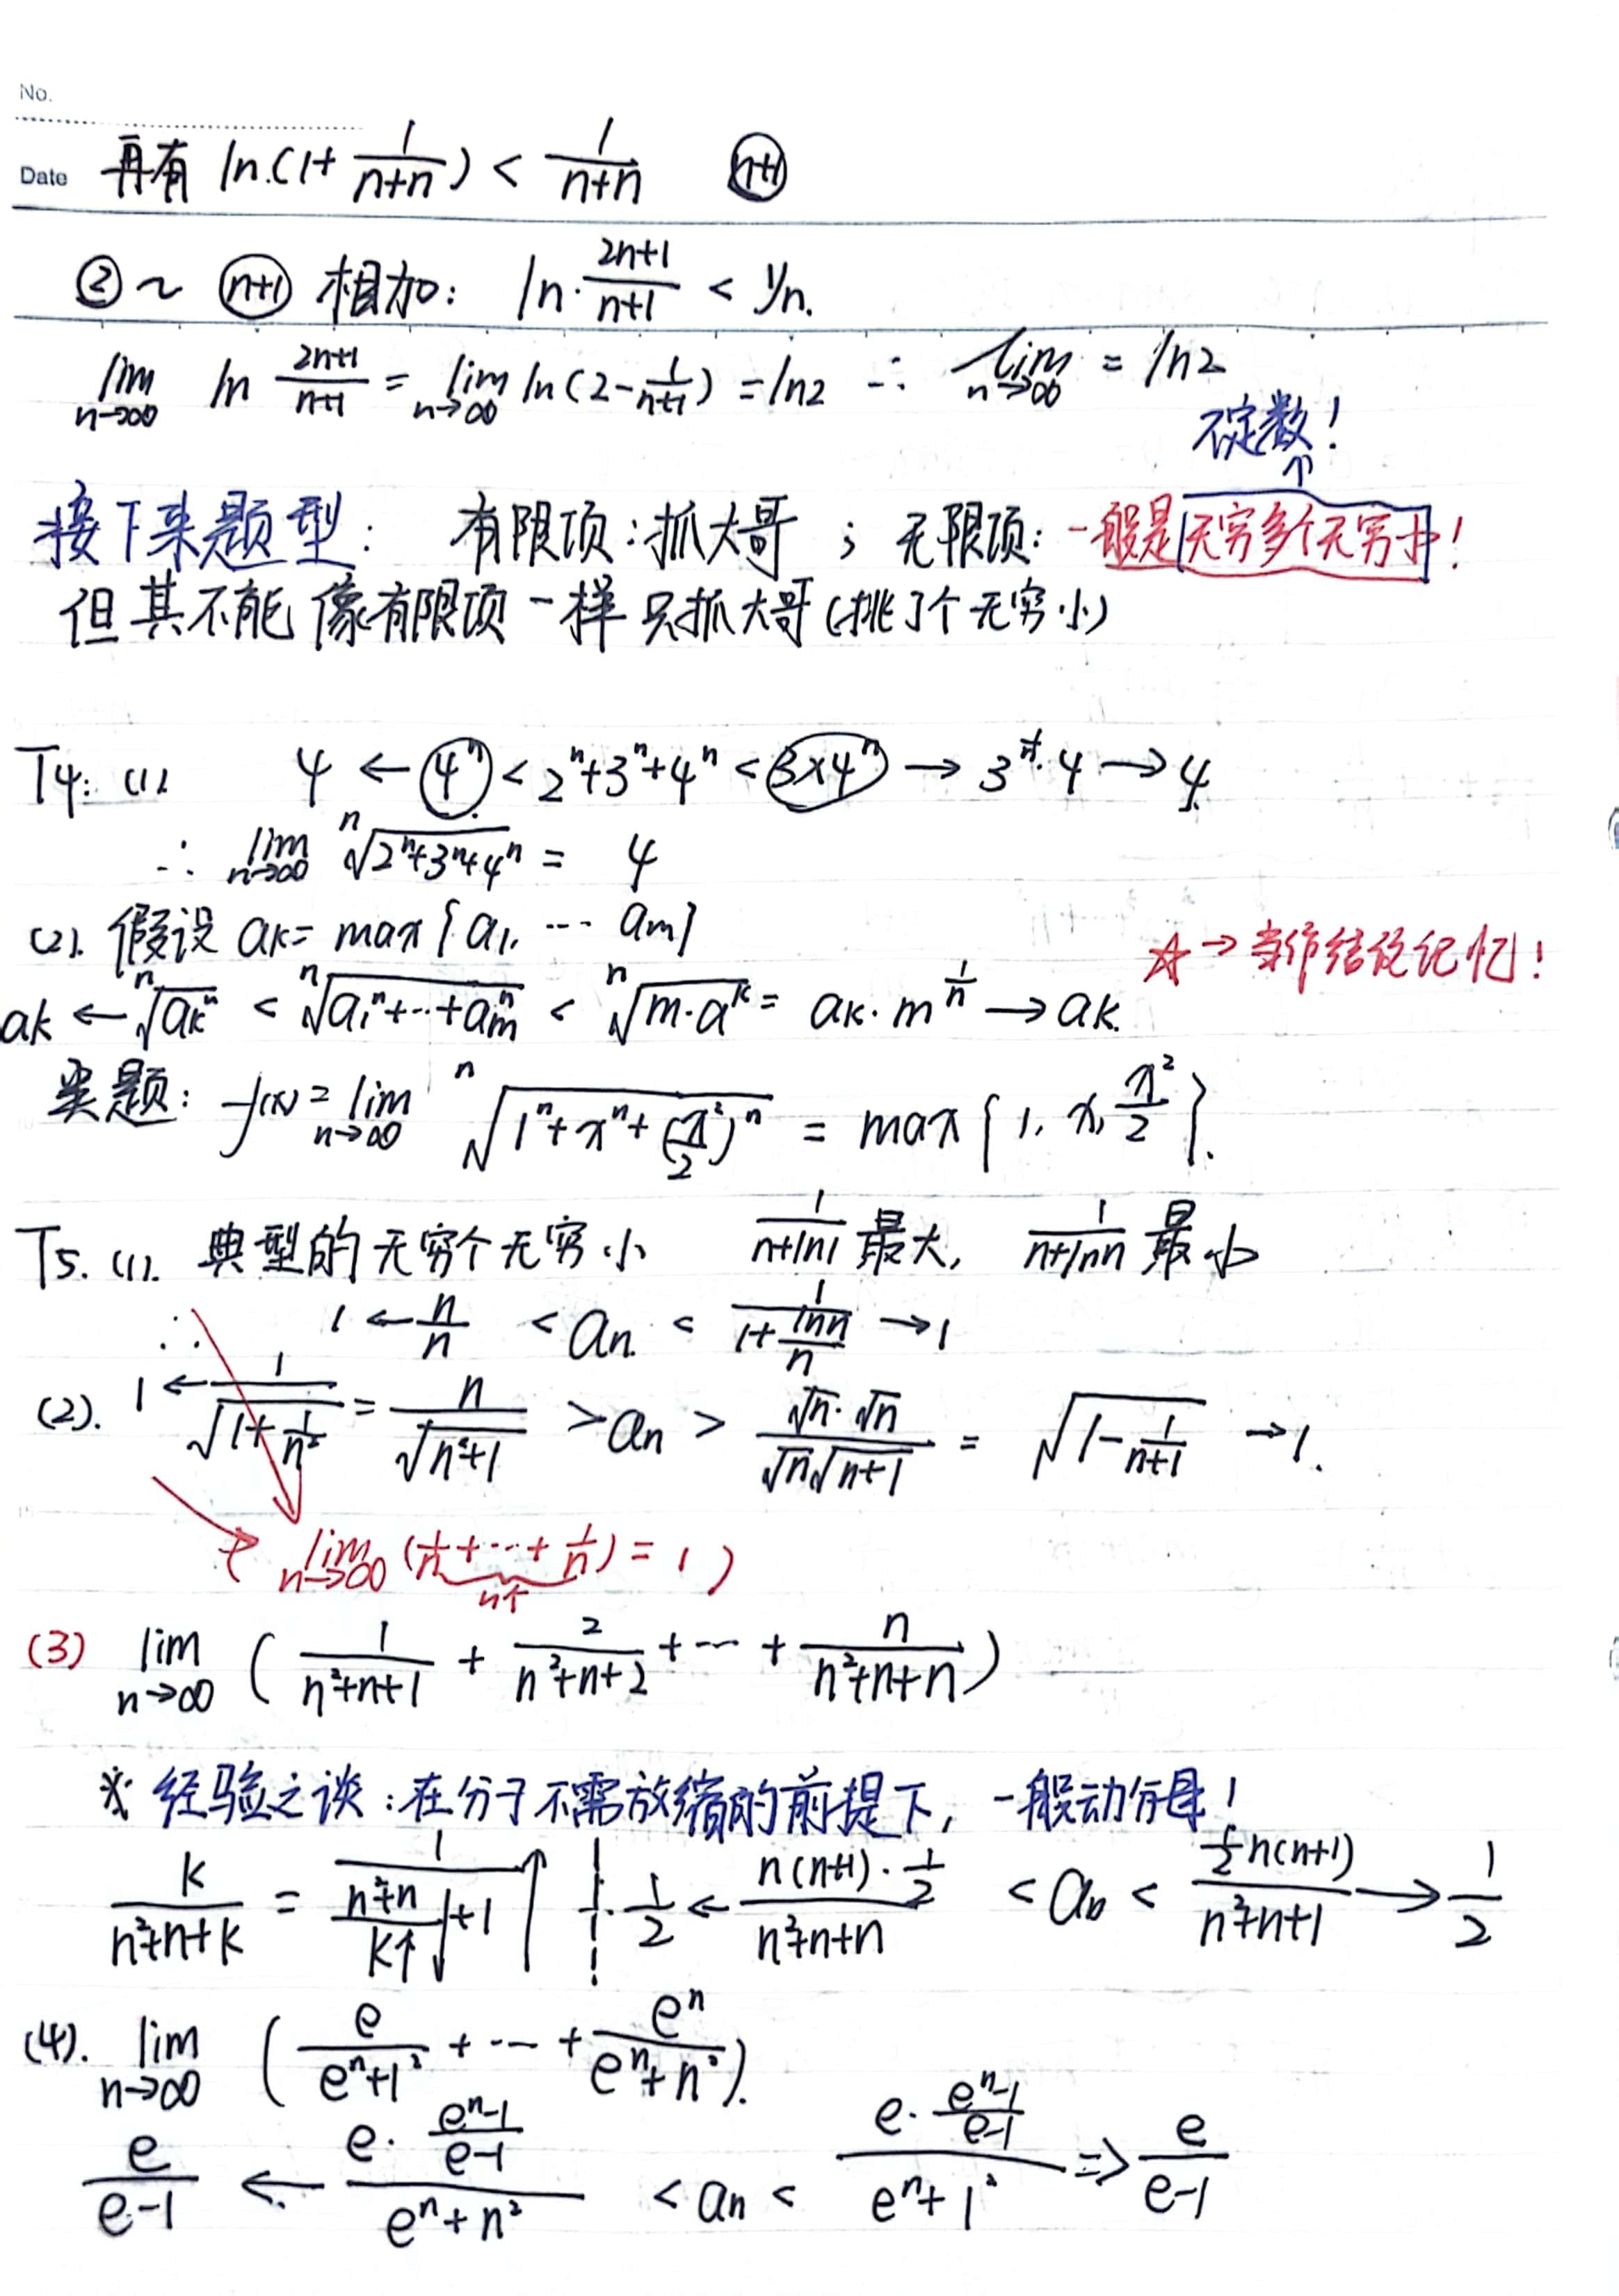 No.
Date 再有 ln(1+ 1/(n+n)) < 1/(n+n) (n+1)
② ~ (n+1) 相加: ln (2n+1)/(n+1) < yn.
lim n→∞ ln (2n+1)/(n+1) = lim n→∞ ln(2 - 1/(n+1)) = ln2 ∴ lim n→∞ = ln2
不定数!
↑
接下来题型: 有限项:抓大哥 ; 无限项: 一般是 无穷多个无穷小!
但其不能像有限项一样只抓大哥(挑了个无穷小)
T4: (1) 4 ← 4^n < 2^n+3^n+4^n < 3×4^n → 3^(1/n)·4 → 4.
∴ lim n→∞ ⁿ√(2^n+3^n+4^n) = 4
(2). 假设 ak = max{a1, ... am} ☆→当作结论记忆!
ak ← ⁿ√(ak^n) < ⁿ√(a1^n+…+am^n) < ⁿ√(m·a^k) = ak·m^(1/n) → ak.
类题: f(x) = lim n→∞ ⁿ√(1^n+x^n+(x²/2)^n) = max{1, x, x²/2}.
T5. (1). 典型的无穷个无穷小 1/(n+ln1) 最大, 1/(n+lnn) 最小
∴ 1 ← n/n < an < 1/(1+ lnn/n) → 1
(2). 1 ← 1/√(1+ 1/n²) = n/√(n²+1) > an > √n·√n/(√n√(n+1)) = √(1 - 1/(n+1)) → 1.
( lim n→∞ (1/n+…+1/n) = 1 )
n个
(3) lim n→∞ ( 1/(n²+n+1) + 2/(n²+n+2) + … + n/(n²+n+n) )
※ 经验之谈:在分子不需放缩的前提下, 一般动分母!
k/(n²+n+k) = 1/((n²+n)/k↑ ↓ +1) ↑ ∴ 1/2 ← n(n+1)·1/2 /(n²+n+n) < an < 1/2 n(n+1)/(n²+n+1) → 1/2
(4). lim n→∞ ( e/(e^n+1²) + … + e^n/(e^n+n²) ).
e/(e-1) ← e·(e^n-1)/(e-1) /(e^n+n²) < an < e·(e^n-1)/(e-1) /(e^n+1²) ⇒ e/(e-1)